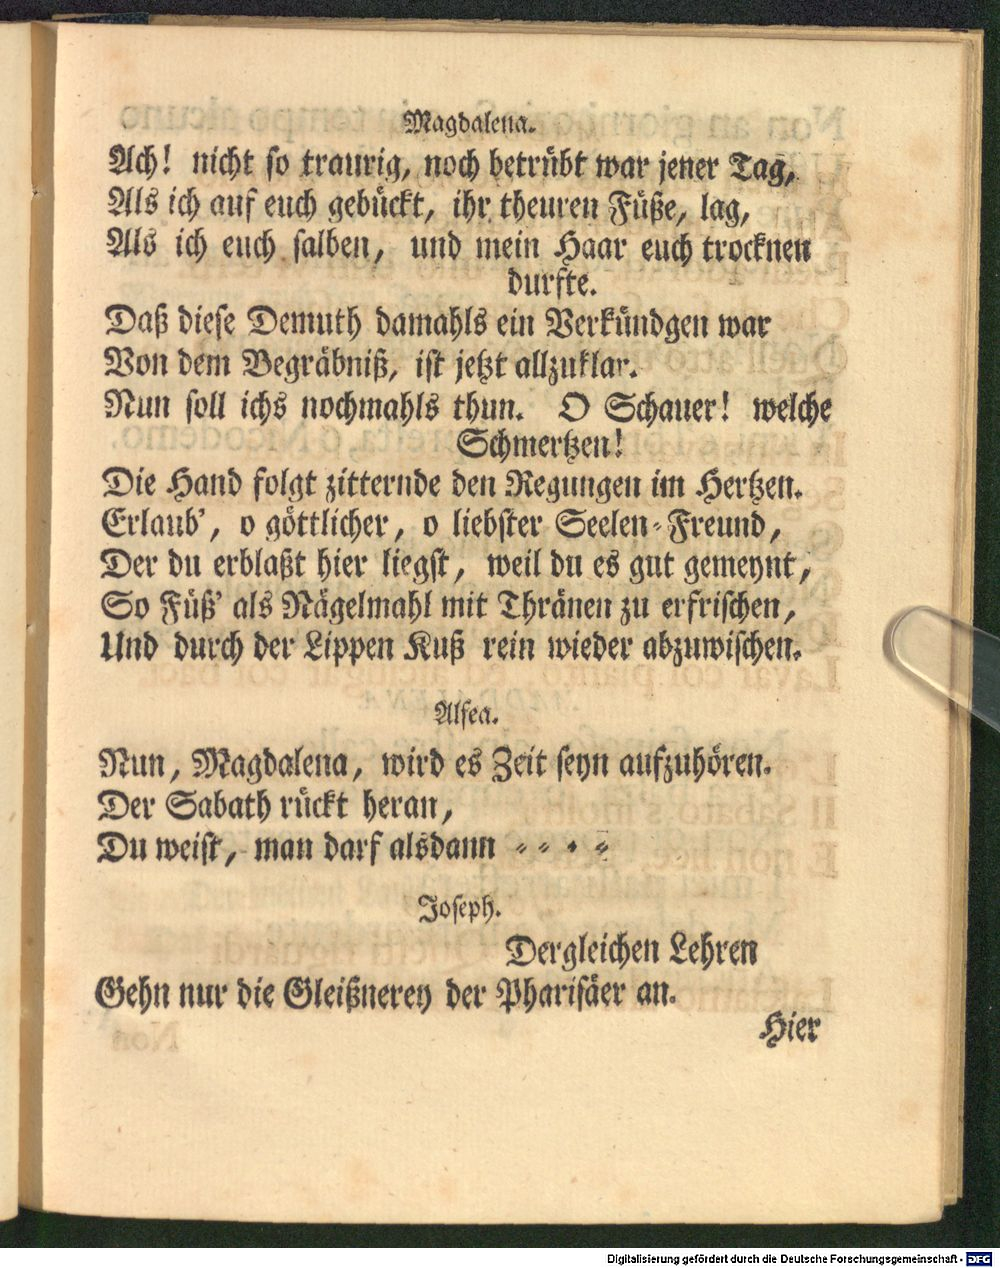 Magdalena.
Ach! nicht so traurig, noch betrübt war jener Tag,
Als ich auf euch gebückt, ihr theuren Füße, lag,
Als ich euch salben, und mein Haar euch trocknen
durfte.
Daß diese Demuth damahls ein Verkündgen war
Von dem Begräbniß, ist jetzt allzuklar.
Nun soll ichs nochmahls thun. O Schauer! welche
Schmertzen!
Die Hand folgt zitternde den Regungen im Hertzen.
Erlaub', o göttlicher, o liebster Seelen-Freund,
Der du erblaßt hier liegst, weil du es gut gemeynt,
So Füß' als Nägelmahl mit Thränen zu erfrischen,
Und durch der Lippen Kuß rein wieder abzuwischen.
Alfea.
Nun, Magdalena, wird es Zeit seyn aufzuhören.
Der Sabath rückt heran,
Du weist, man darf alsdann - - - -
Joseph.
Dergleichen Lehren
Gehn nur die Gleißnerey der Pharisäer an.
Hier
Digitalisierung gefördert durch die Deutsche Forschungsgemeinschaft - DFG